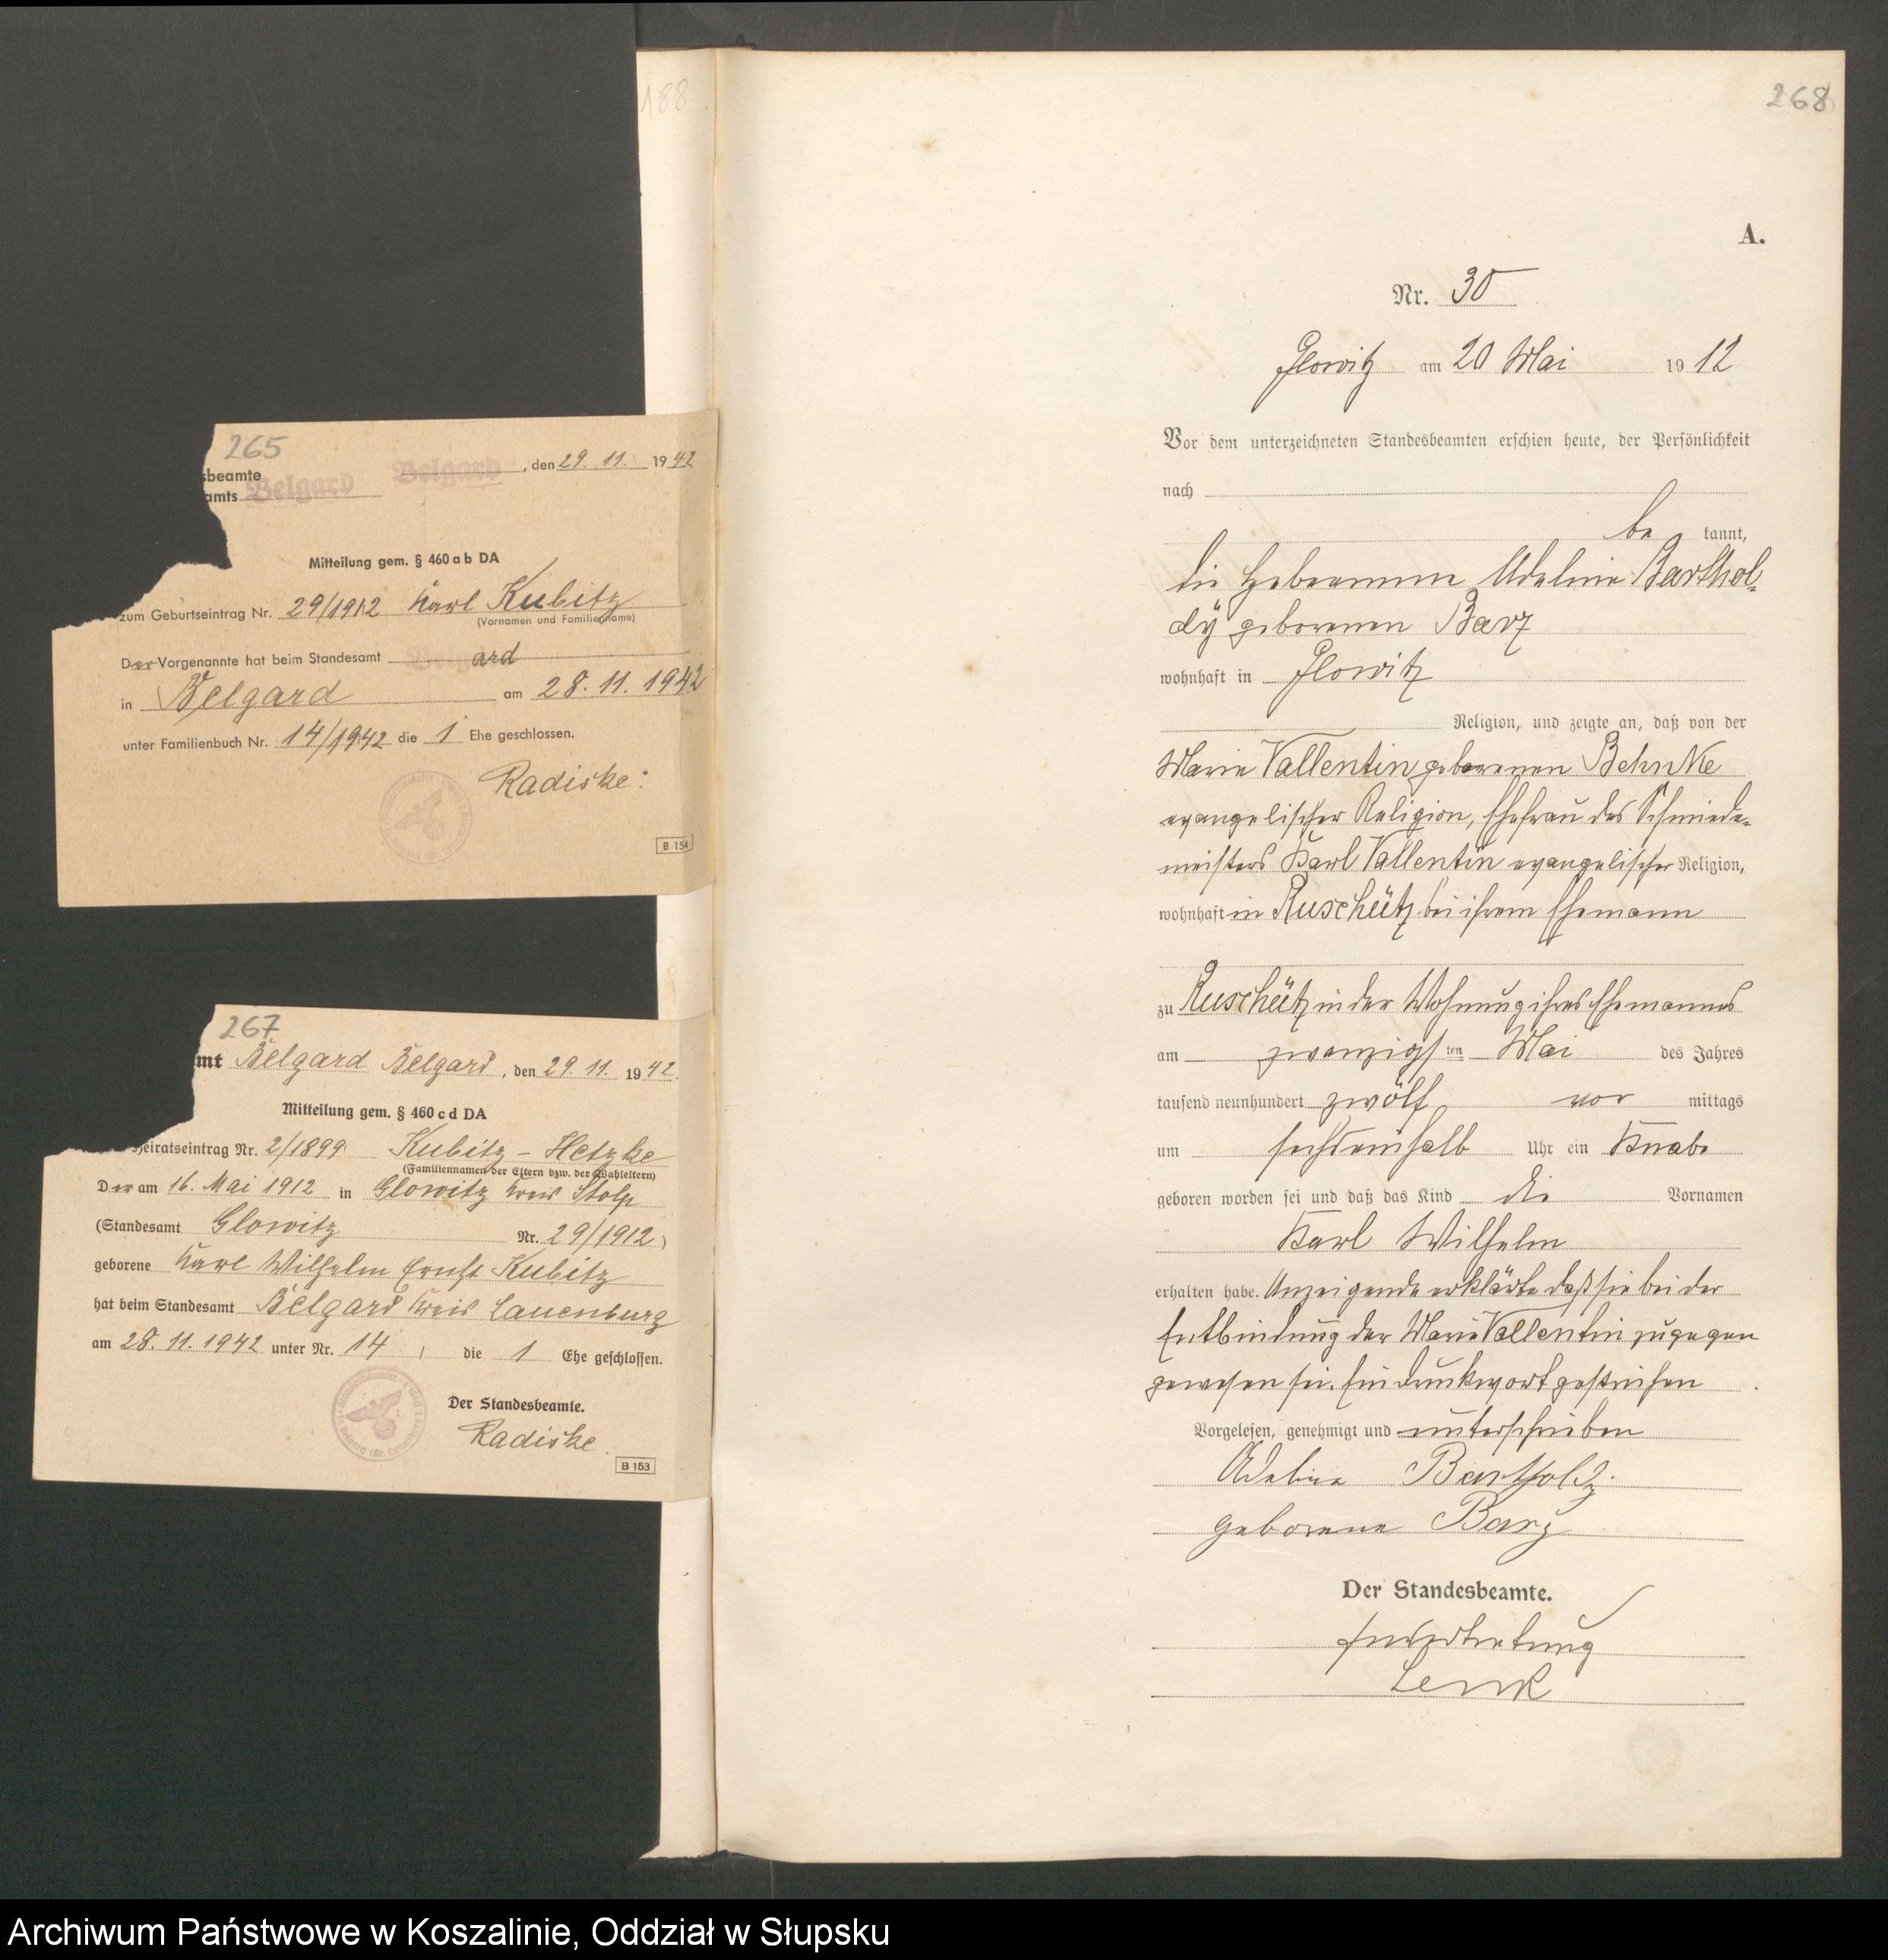 188
265
sbeamte
amts Belgard Belgard, den 29. 11. 1942
Mitteilung gem. § 460 a b DA
zum Geburtseintrag Nr. 29/1912 Karl Kubitz
(Vornamen und Familienname)
Der Vorgenannte hat beim Standesamt ard
in Belgard am 28. 11. 1942
unter Familienbuch Nr. 14/1942 die 1 Ehe geschlossen.
Radiske
B 154
267
mt Belgard Belgard, den 29 11. 1942.
Mitteilung gem. § 460 c d DA
Heiratseintrag Nr. 2/1899 Kubitz - Hetzke
(Familiennamen der Eltern bzw. der Wahleltern)
Der am 16. Mai 1912 in Glowitz Kreis Stolp
(Standesamt Glowitz Nr. 29/1912)
geborene Karl Wilhelm Ernst Kubitz
hat beim Standesamt Belgard Kreis Lauenburg
am 28. 11. 1942 unter Nr. 14, die 1 Ehe geschlossen.
Der Standesbeamte.
Radiske
B 153
268
A.
Nr. 30
Glowitz am 20 Mai 1912
Vor dem unterzeichneten Standesbeamten erschien heute, der Persönlichkeit
nach
be kannt,
die Hebeamme Adeline Barthol-
dÿ geborenen Barz
wohnhaft in Glowitz
Religion, und zeigte an, daß von der
Marie Vallentin geborenen Behnke
evangelischer Religion, Ehefrau des Schmiede-
meisters Karl Vallentin evangelischer Religion,
wohnhaft in Ruschütz bei ihrem Ehemann
zu Ruschütz in der Wohnung ihres Ehemannes
am zwanzigsten Mai des Jahres
tausend neunhundert zwölf vor mittags
um sechseinhalb Uhr ein Knabe
geboren worden sei und daß das Kind die Vornamen
Karl Wilhelm
erhalten habe. Anzeigende erklärte daß sie bei der
Entbindung der Marie Vallentin zugegen
gewesen sei. Ein Druckwort gestrichen
Vorgelesen, genehmigt und unterschrieben
Adeline Bartholdy
geborene Barz
Der Standesbeamte.
In Vertretung
Lenk
Archiwum Państwowe w Koszalinie, Oddział w Słupsku